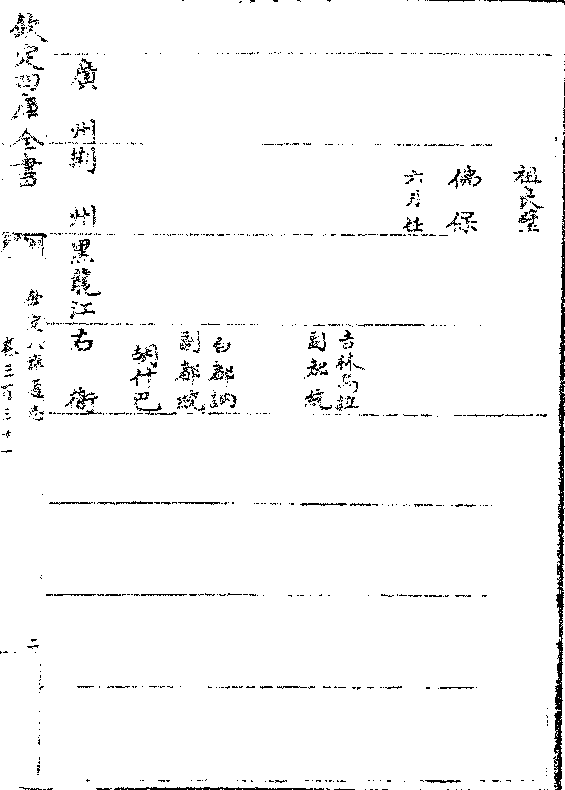 祖良璧
佛保
六月任
吉林烏拉
副都統
白都訥
副都統
胡什巴
廣州荆州黑龍江右衛
欽定四庫全書
欽定八旗通志
卷三百三十一
二